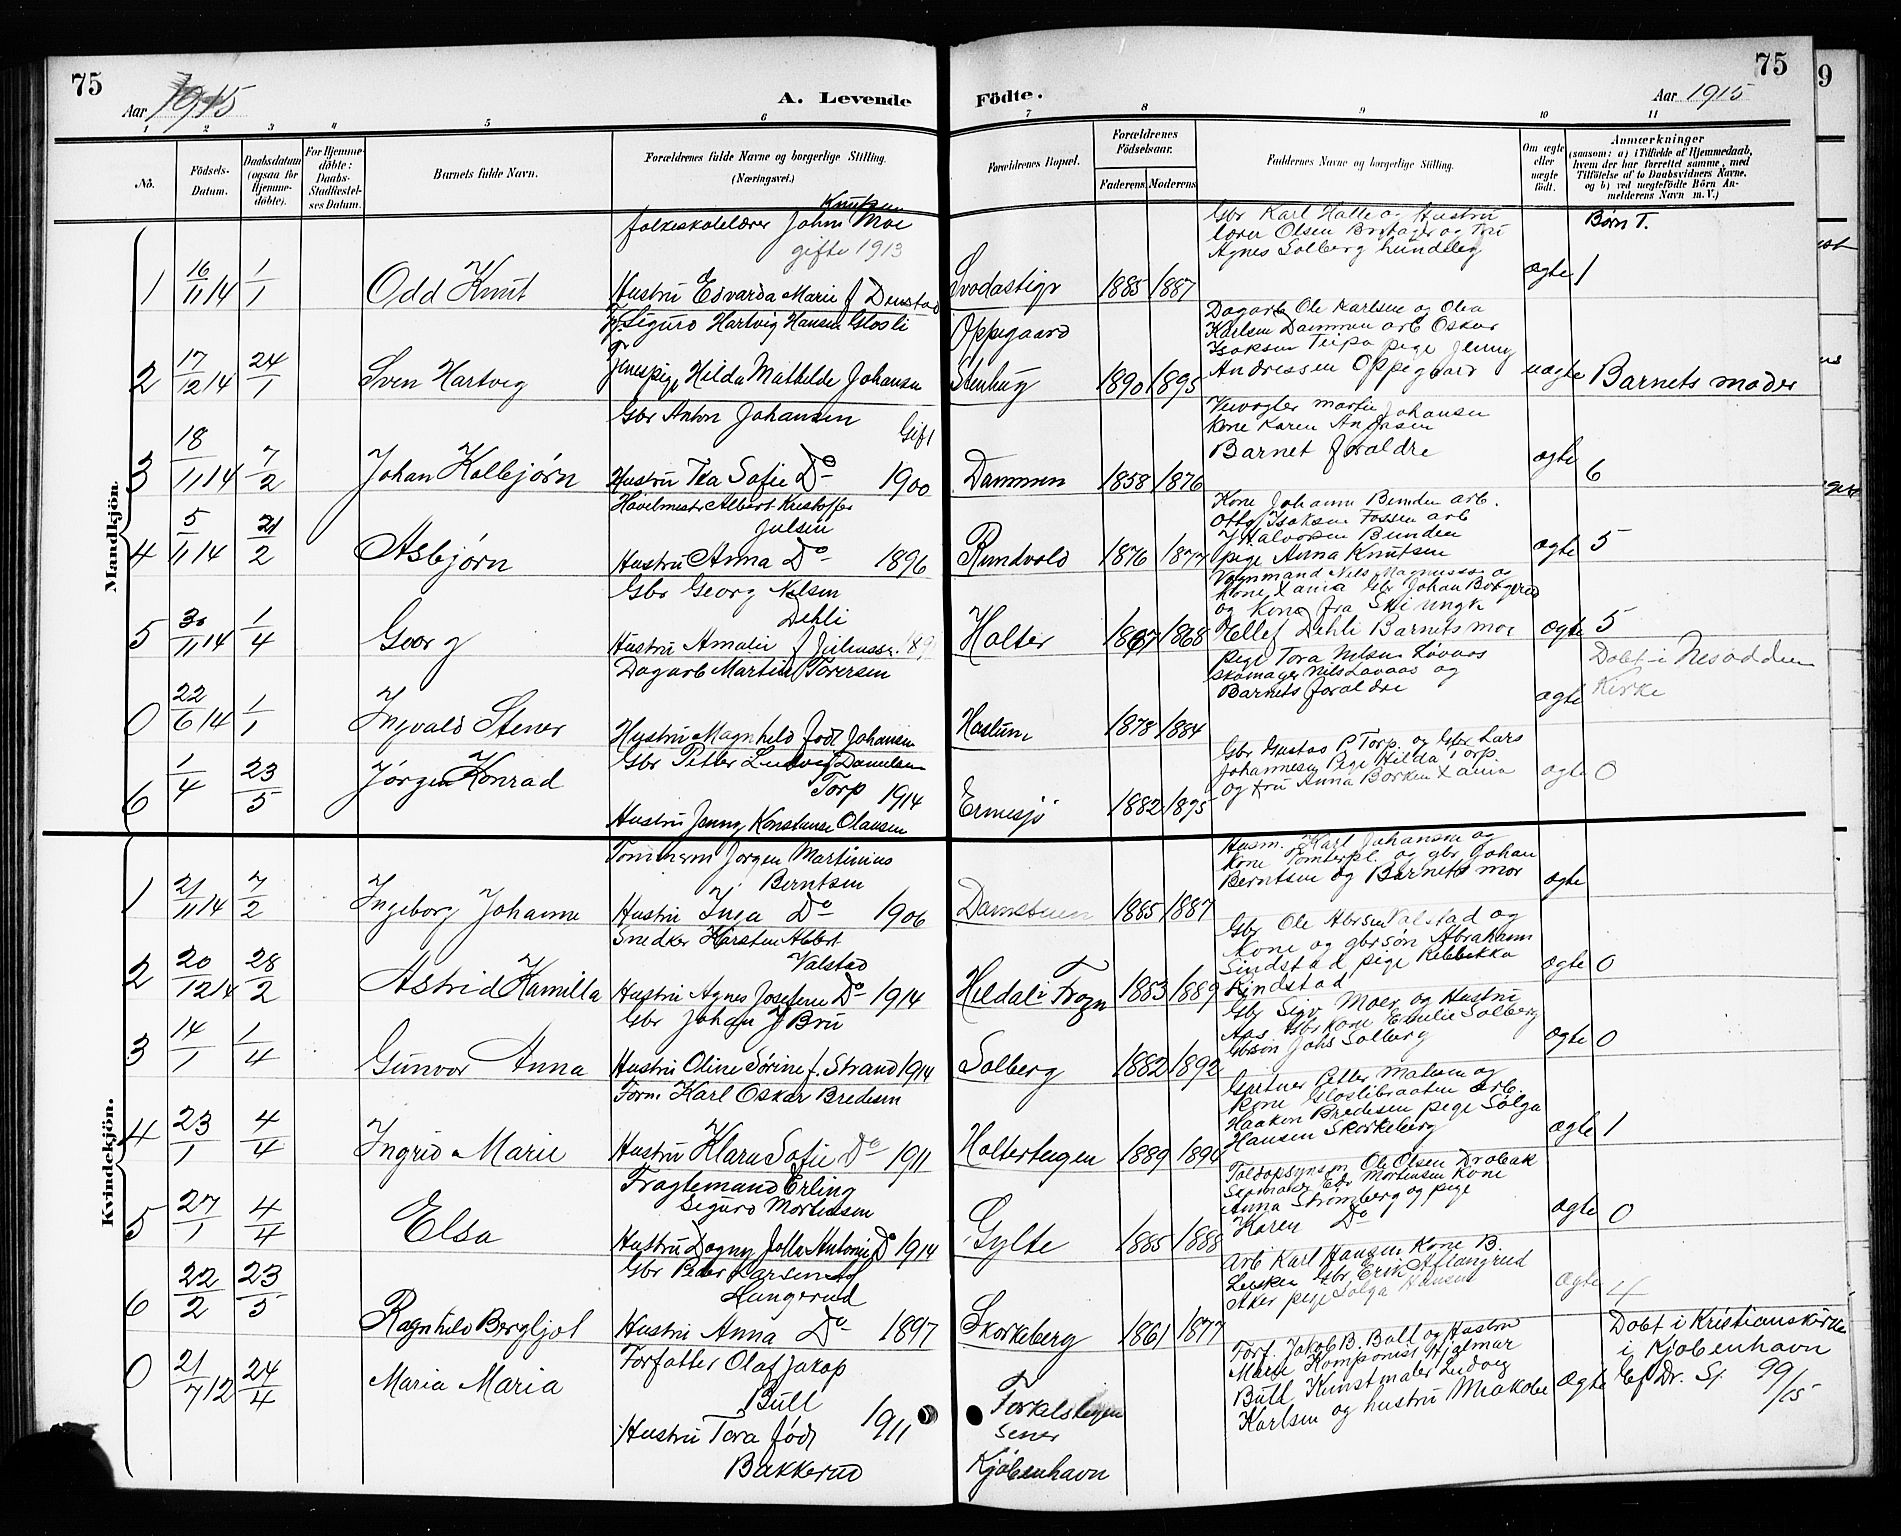 75
Aar 1915
A. Levende
Födte.
75
Aar 1915
9
1 2 3 4 5 6 7 8 9 10 11
No.
Födsels-
Datum.
Daabsdatum
(ogsaa for
Hjemme-
döbte).
For Hjemme-
döbte:
Daabs-
Stadfæstel-
ses Datum.
Barnets fulde Navn.
Forældrenes fulde Navne og borgerlige Stilling.
(Næringsvei.)
Forældrenes Bopæl.
Forældrenes
Födselsaar.
Faderens. Moderens.
Faddernes Navne og borgerlige Stilling.
Om ægte
eller
uægte
födt.
Anmærkninger
(saasom: a) i Tilfælde af Hjemmedaab,
hvem der har forrettet samme, med
Tilföielse af to Daabsvidners Navne,
og b) ved uægtefödte Börn An-
melderens Navn m.V.)
Børn T.
Mandkjön.
1 16/11 14 1/1 Odd Knut
folkeskolelærer Johns Moe
Knutsen
gifte 1913
Hustru Edvarda Marie f Denstad
Svodastige 1885 1887
Gbr Karl Halle og Hustru
lærer Olsen Brytager og Fru
Agnes Solberg hundeleg
ægte 1
2 17/12 14 24/1 Sven Hartvig
Sigurd Hartvig Hansen Glosli
Tjenepige Hilda Mathilde Johansen
Oppegaard
Stenhug 1890 1895
Dagarb Ole Karlsen og Olea
Karlsen Dammen arb Oskar
Isaksen Teipa pige Jenny
Andressen Oppegaard
uægte Barnets moder
3 18/11 14 7/2 Johan Kolbjørn
Gbr Anton Johansen
Gift
Hustru Tea Sofie Do 1900
Dammen 1858 1876
Veivogter Martin Johansen
Kone Karen Andrsen
Barnet foraldre
ægte 6
4 5/11 14 21/2 Asbjørn
Høvelmestr Albert Kristoffer
Julsen
Hustru Anna Do 1896
Rundvold 1876 1877
Kone Johanne Bunden arb.
Otto Isaksen Fossen arb
J Halvorsen Bunden
pige Anna Knutsen
ægte 5
5 30/11 14 1/4 Georg
Gbr Georg Nilsen
Dehli
Hustru Amalie f Juliussen
Holter 1867 1868
Vognmand Nils Magnussen og
Kone Xania Gbr Johan Borgerud
og Kone fra Ski ungk
Ellef Dehli Barnets moe
ægte 5
0 22/6 14 1/1 Ingvald Stener
Dagarb Martin Toresen
Hustru Magnhild født Johansen
Haslum 1878 1884
pige Tora Nilsen Løvaas
Skomager Nils Løvaas og
Barnets foraldre
ægte
Døbt i Nesodden
Kirke
6 1/4 23/5 Jørgen Konrad
Gbr Petter Ludvig Danielsen
Torp 1914
Hustru Jenny Konstanse Olausen
Ermesjø 1882 1895
Gbr Gustav P Torp og Gbr Lars
Johannesen Pige Hilda Torp
og Fru Anna Borken Xania
ægte 0
Kvindekjön.
1 21/11 14 7/2 Ingeborg Johanne
Tømmerm Jørgen Martinius
Berntsen
Hustru Inga Do 1906
Damstuen 1885 1887
Husm. Karl Johansen og
Kone Tomterpl. og gbr Johan
Berntsen og Barnets mor
ægte
2 20/12 14 28/2 Astrid Kamilla
Snedker Karsten Albert
Valstad
Hustru Agnes Josefine Do 1914
Hildal i Frogn 1883 1889
Gbr Ole Abrsen Valstad og
Kone og gbrsøn Abraham
Sindstad pige Rebekka
Rindstad
ægte 0
3 14/1 1/4 Gunvor Anna
Gbr Johan J Bru
Hustru Oline Sørine f. Strand 1914
Solberg 1882 1892
Gbr Sigv Moer og Hustru
Aas Gbr Kone Emelie Solberg
Gbrsøn Johs Solberg
ægte 0
4 23/1 4/4 Ingrid Marie
Form Karl Oskar Bredesen
Hustru Klara Sofie Do 1911
Holterhagen 1889 1894
Gartner Petter Madsen og
Kone Gloslibraaten arb.
Haakon Bredesen pige Solga
Hansen Skorkeberg
ægte 1
5 27/1 4/4 Elsa
Fragtemand Erling
Sigurd Mortensen
Hustru Dagny Jolla Antonie Do 1914
Gylte 1885 1888
Toldopsynsm Ole Olsen Drøbak
Skomaker Edv Mortensen Kone
Anna Strømberg og pige
Karen Do
ægte 0
6 22/2 23/5 Ragnhild Bergljot
Gbr Peder Larsen
Hungerud
Hustru Anna Do 1897
Skorkeberg 1861 1877
Arb Karl Hansen Kone B.
Lesken Gbr Erik Aflangrud
Aker pige Solga Hansen
ægte 4
0 21/7 12 24/4 Maria Maria
Forfatter Olaf Jakop
Bull
Hustru Tora født 1911
Bakkerud
Torkelstegen
Sener
Kjøbenhavn
Forf. Jakob B. Bull og Hustru
Marie Komponist Hjalmar
Bull Kunstmaler Ludvig
Karlsen og hustru Miakobe
ægte
Døbt i Kristianskirke
i Kjøbenhavn
Ef Dr. Sj. 99/15